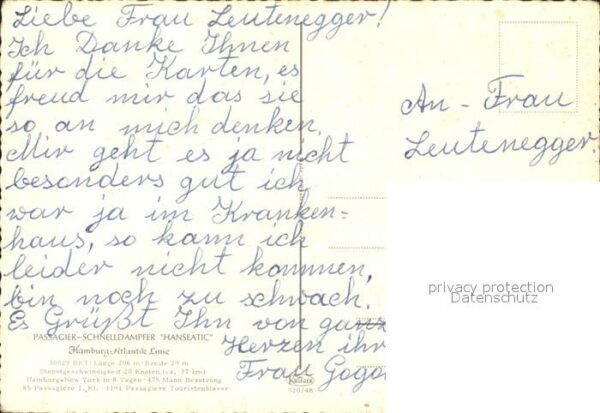 Liebe Frau Leutenegger!
Ich Danke Ihnen
für die Karten, es
freud mir das sie
so an mich denken.
Mir geht es ja nicht
besonders gut ich
war ja im Kranken=
haus, so kann ich
leider nicht kommen,
bin noch zu schwach.
Es Grüßt Ihn von ganz
Herzen ihr
Frau Gogo
An - Frau
Leutenegger.
privacy protection
Datenschutz
PASSAGIER-SCHNELLDAMPFER "HANSEATIC"
Hamburg-Atlantik Linie
30029 BRT · Länge 206 m · Breite 29 m
Dienstgeschwindigkeit 20 Knoten (ca. 37 km)
Hamburg-New York in 8 Tagen · 475 Mann Besatzung
85 Passagiere I. Kl. · 1191 Passagiere Touristenklasse